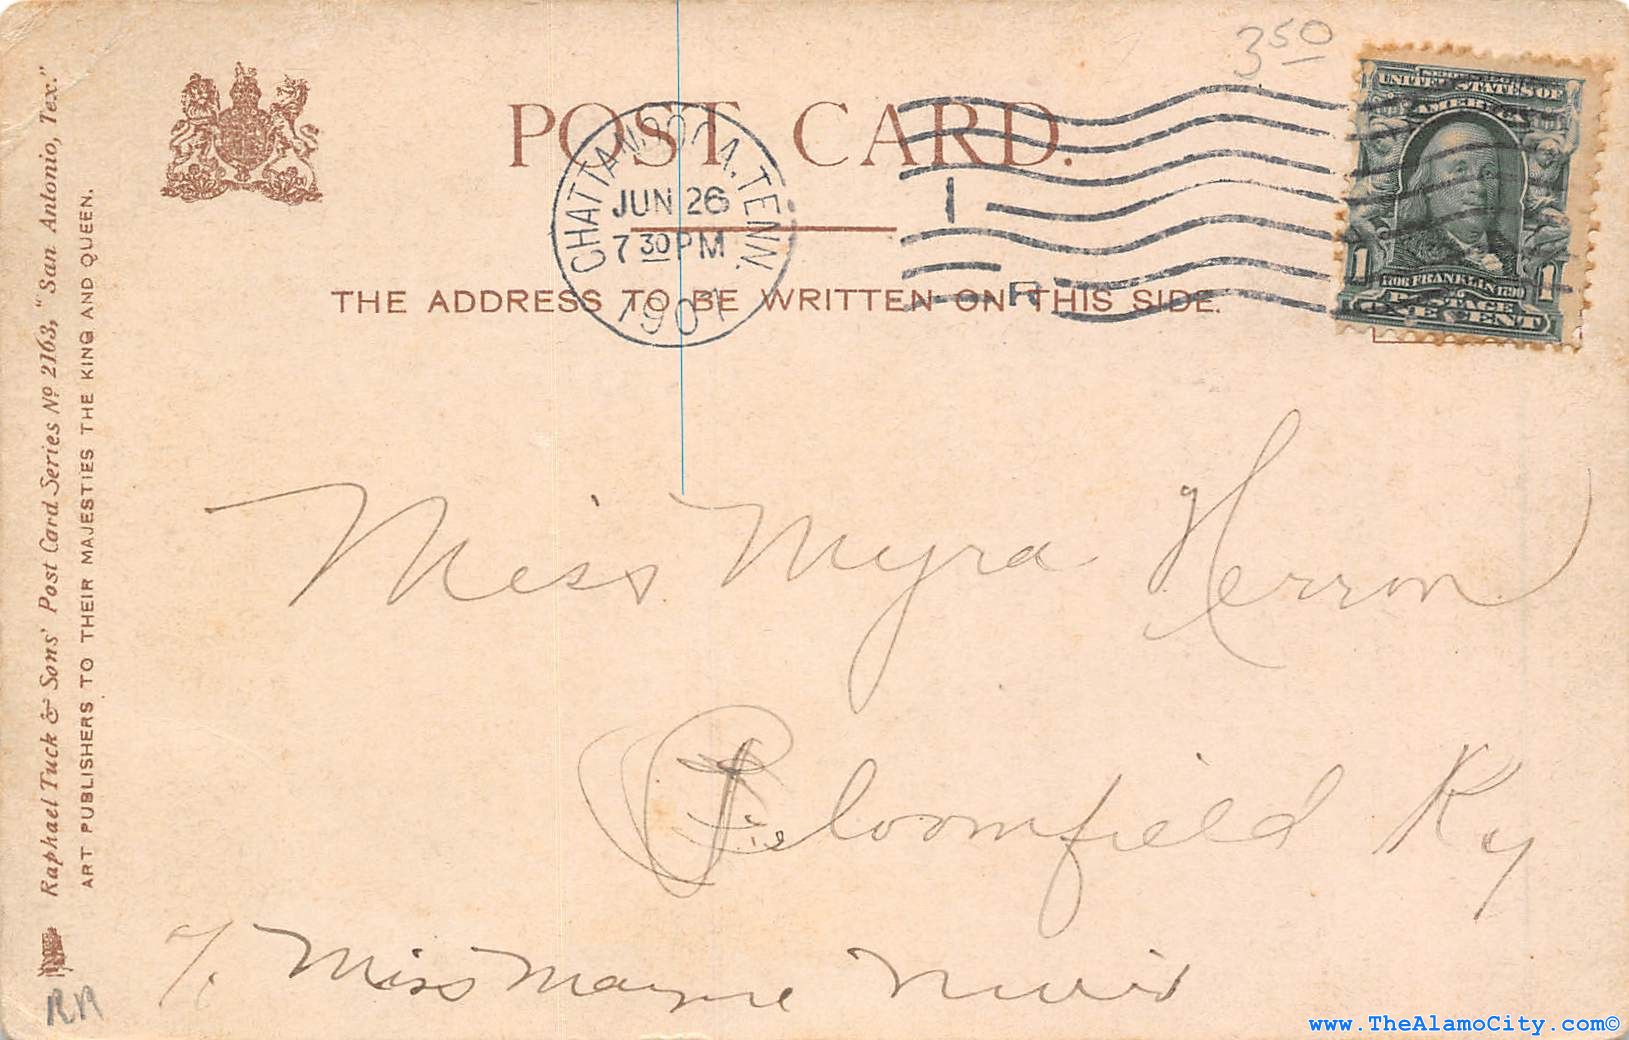 3 50
POST CARD.
CHATTANOOGA, TENN.
JUN 26
7 30 PM
190
1
R
THE ADDRESS TO BE WRITTEN ON THIS SIDE.
UNITED STATES OF
AMERICA
1706 FRANKLIN 1790
1 1
POSTAGE
ONE CENT
Raphael Tuck & Sons' Post Card Series No 2163, "San Antonio, Tex."
ART PUBLISHERS TO THEIR MAJESTIES THE KING AND QUEEN.
Miss Myra Herron
Bloomfield Ky
Miss Mayme
RR
www.TheAlamoCity.com©